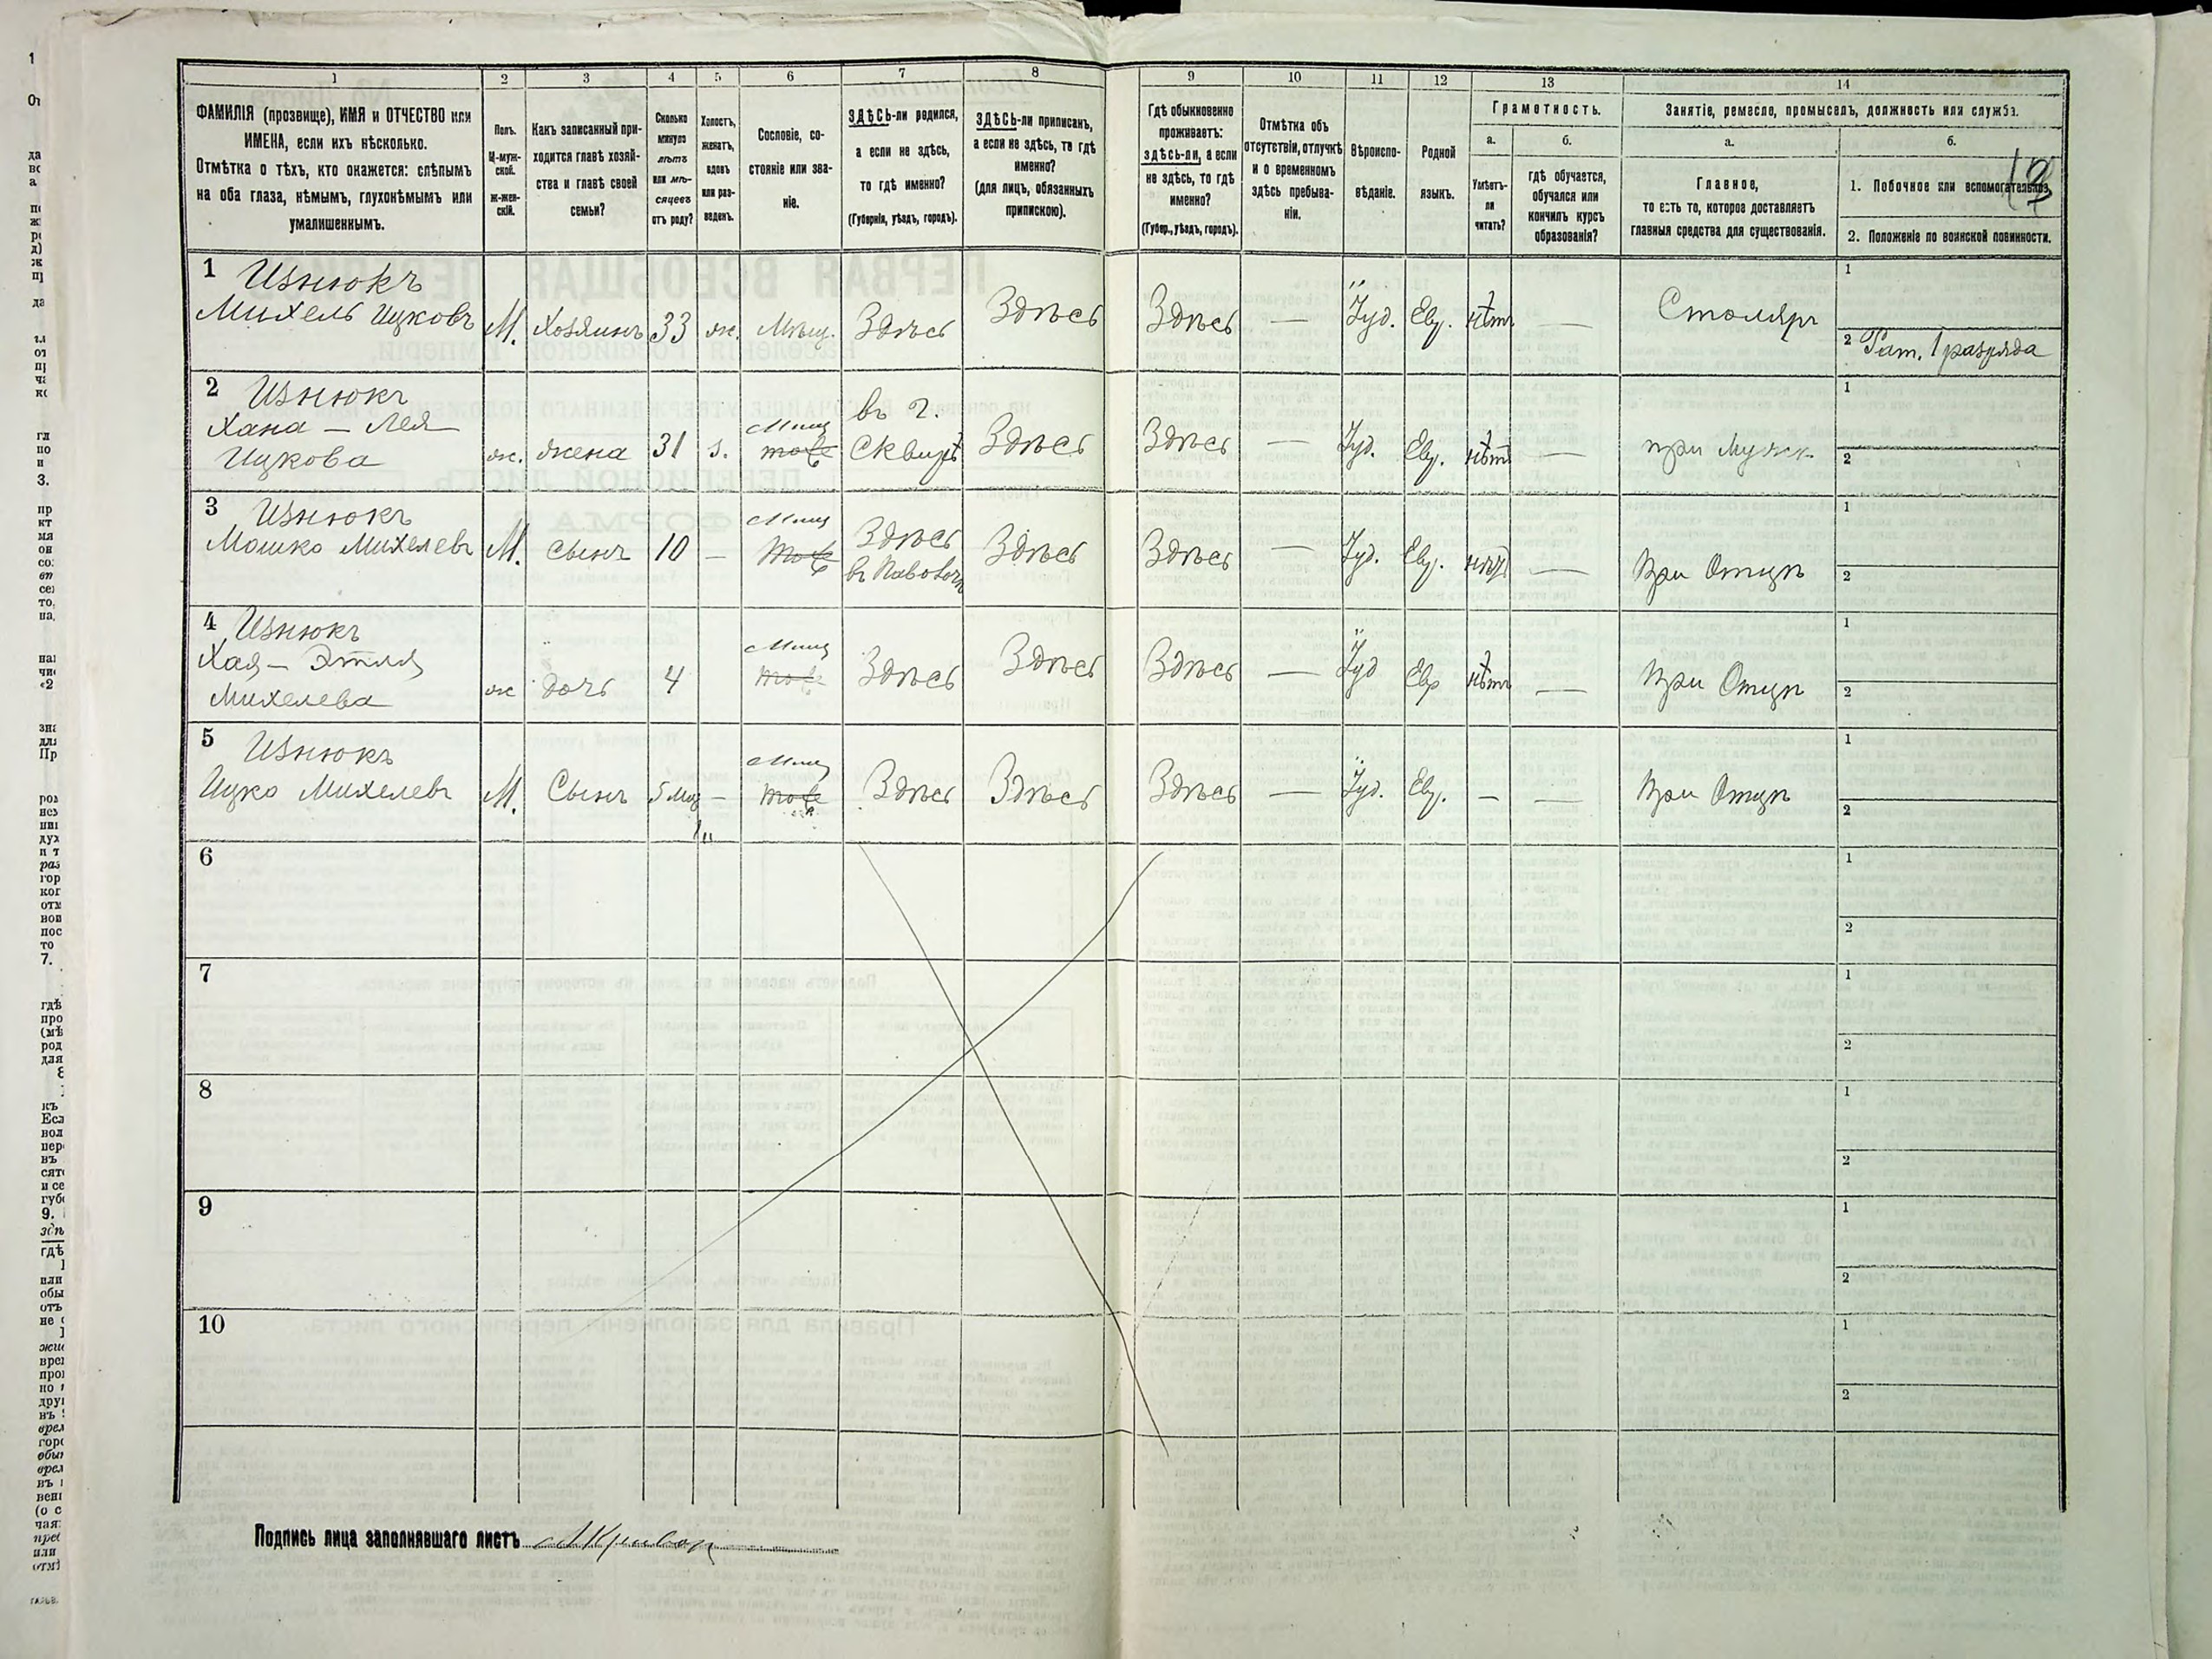 1 2 3 4 5 6 7 8 9 10 11 12 13 14
ФАМИЛІЯ (прозвище), ИМЯ и ОТЧЕСТВО или
ИМЕНА, если ихъ нѣсколько.
Отмѣтка о тѣхъ, кто окажется: слѣпымъ
на оба глаза, нѣмымъ, глухонѣмымъ или
умалишеннымъ.
Полъ.
М-муж-
ской.
Ж-жен-
скій.
Какъ записанный при-
ходится главѣ хозяй-
ства и главѣ своей
семьи?
Сколько
минуло
лѣтъ
или мѣ-
сяцевъ
отъ роду?
Холостъ,
женатъ,
вдовъ
или раз-
веденъ.
Сословіе, со-
стояніе или зва-
ніе.
ЗДѢСЬ-ли родился,
а если не здѣсь,
то гдѣ именно?
(Губернія, уѣздъ, городъ).
ЗДѢСЬ-ли приписанъ,
а если не здѣсь, то гдѣ
именно?
(для лицъ, обязанныхъ
припискою).
Гдѣ обыкновенно
проживаетъ:
здѣсь-ли, а если
не здѣсь, то гдѣ
именно?
(Губер., уѣздъ, городъ).
Отмѣтка объ
отсутствіи, отлучкѣ
и о временномъ
здѣсь пребыва-
ніи.
Вѣроиспо-
вѣданіе.
Родной
языкъ.
Грамотность.
а.
Умѣетъ-
ли
читать?
б.
гдѣ обучается,
обучался или
кончилъ курсъ
образованія?
Занятіе, ремесло, промыселъ, должность или служба.
а.
Главное,
то есть то, которое доставляетъ
главныя средства для существованія.
б.
1. Побочное или вспомогательное.
2. Положеніе по воинской повинности.
1 Изнюкъ
Михель Ицковъ М. Хозяинъ 33 ж. Мѣщ. Здѣсь Здѣсь Здѣсь — Іуд. Евр. нѣтъ — Столяръ
1
2 Рат. 1 разряда
2 Изнюкъ
Хана — Лея
Ицкова ж. жена 31 з. Мѣщ тоже въ г.
Сквирѣ Здѣсь Здѣсь — Іуд. Евр. нѣтъ — при Мужѣ
1
2
3 Изнюкъ
Мошко Михелевъ М. Сынъ 10 — Мѣщ тоже Здѣсь
въ Паволочи Здѣсь Здѣсь — Іуд. Евр. нѣтъ — При Отцѣ
1
2
4 Изнюкъ
Хая — Этля
Михелева ж дочь 4 Мѣщ тоже Здѣсь Здѣсь Здѣсь — Іуд Евр нѣтъ — При Отцѣ
1
2
5 Изнюкъ
Ицко Михелевъ М. Сынъ 5 Мѣс — Мѣщ тоже Здѣсь Здѣсь Здѣсь — Іуд. Евр. — — При Отцѣ
1
2
6
1
2
7
1
2
8
1
2
9
1
2
10
1
2
Подпись лица заполнявшаго листъ